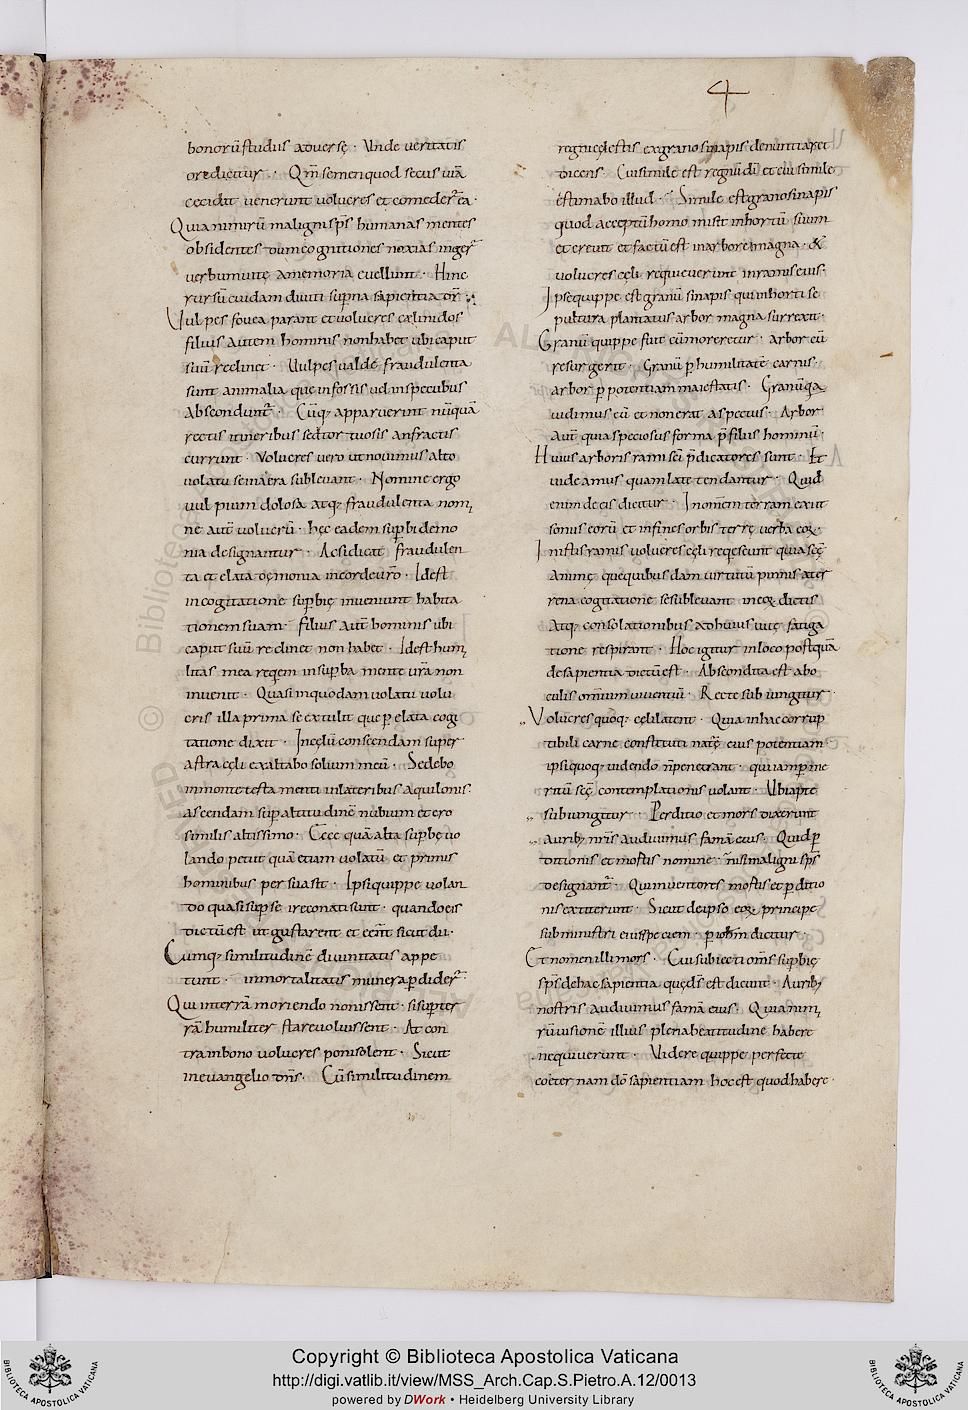 4
bonorū studiis adverse · Unde veritatis
ore dicitur · Qm̄ semen quod secus viā
cecidit venerunt volucres et comeder̄ ea ·
Quia nimirū maligni sps̄ humanas mentes
obsidentes dum cogitationes noxias inger̄
verbum vitę a memoria evellunt · Hinc
rursū cuidam diviti sup̄na sapientia dr̄
Vulpes fovea parant et volucres cæli nidos
filius autem hominis non habet ubi caput
suū reclinet · Vulpes valde fraudulenta
sunt animalia quę in fossis vel in specubus
abscondunt̄ · Cūq; apparuerint nūquā
rectis itineribus sed tortuosis anfractis
currunt · Volucres vero ut novimus alto
volatu se in aera sublevant · Nomine ergo
vulpium dolosa atq; fraudulenta nomi
ne aut̄ volucrū · hęc eadem sup̄bi demo
nia designantur · Ac si dicat fraudulen
ta et elata dęmonia in corde vr̄o · Id est
in cogitatione sup̄bię inveniunt habita
tionem suam · filius aut̄ hominis ubi
caput suū reclinet non habet · Id est humi
litas mea reqem in sup̄ba mente vr̄a non
invenit · Quasi in quodam volatu volu
cris illa prima se extulit que p̄ elata cogi
tatione dixit · In cęlū conscendam super
astra cęli exaltabo solium meū · Sedebo
in monte testamenti in lateribus aquilonis ·
ascendam sup̄ altitudinē nubium et ero
similis altissimo · Ecce quā alta sup̄bę vo
lando petiit quā etiam volatū et primis
hominibus persuasit · Ipsi quippe volan
do quasi sup̄ se ire conati sunt · quando eis
dictū est ut gustarent et eēnt sicut dii ·
Cumq; similitudinē divinitatis appe
tunt · inmortalitatis munera p̄dider̄ ·
Qui in terrā moriendo non issent · si sup̄ ter
rā humiliter stare voluissent · At con
tra in bono volucres poni solent · Sicut
in evangelio dn̄s · Cū similitudinem
regni cęlestis ex grano sinapis denuntiaret
dicens · Cui simile est regnū dī et cui simile
estimabo illud · Simile est grano sinapis
quod acceptū homo misit in hortū suum
et crevit et factū est in arbore magna · &
volucres cęli requieverunt in ramis eius ·
Ipse quippe est granū sinapis qui in horti se
pultura plantatus arbor magna surrexit ·
Granū quippe fuit cū moreretur · arbor cū
resurgerit · Granū p̄ humilitatē carnis ·
arbor p̄ potentiam maiestatis · Granū qa
vidimus eū et non erat aspectus · Arbor
aut̄ quia speciosus forma p̄ filiis hominū ·
Huius arboris rami sc̄i p̄dicatores sunt · Et
videamus quam late tendantur · Quid
enim de eis dicitur · In omnem terram exiit
sonus eorū et in fines orbis terrę verba eoꝝ ·
In istis ramis volucres cęli reqescunt quia sc̄ę
animę que quibusdam virtutū pinnis a ter
rena cogitatione se sublevant in eoꝝ dictis
atq; consolationibus ad huius vitę fatiga
tione respirant · Hoc igitur in loco postquā
de sapientia dictū est · Abscondita est ab o
culis omnium viventiū · Recte subiungitur ·
Volucres quoq; cęli latent · Quia in hac corrup
tibili carne constituti natᷓę eius potentiam ·
ipsi quoq; videndo n̄ penetrant · qui iam p̄ me
ritū sc̄ę contemplationis volant · Ubi apte
subiungitur · Perditio et mors dixerunt
auribꝫ nr̄is audivimus famā eius · Quid p̄
ditionis et mortis nomine · nisi maligni sps̄
designant̄ · Qui inventores mortis et p̄ditio
nis extiterunt · Sicut de ipso eoꝝ principe
sub ministri eius speciem · p̄ iohm̄ dicitur ·
Et nomen illi mors · Cui subiecti om̄s sup̄bię
sps̄ de hac sapientia quę dś est dicunt · Auribꝫ
nostris audivimus famā eius · Quia nimi
rū visionē illius plena beatitudine habere
nequiverunt · Videre quippe perfecte
coæternam dī sapientiam hoc est quod habere ·
Copyright © Biblioteca Apostolica Vaticana
http://digi.vatlib.it/view/MSS_Arch.Cap.S.Pietro.A.12/0013
powered by DWork • Heidelberg University Library